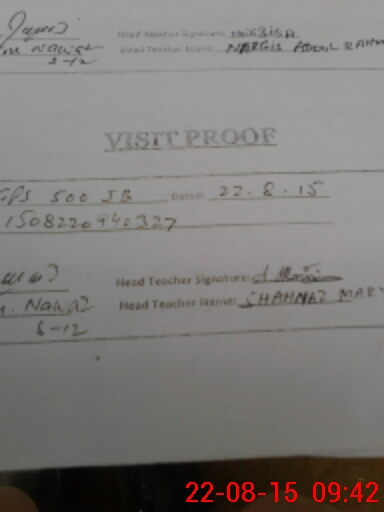 Head Teacher Signature:
M NAWAZ Head Teacher Name: NARGIS ABDUL RAHM
VISIT PROOF
GPS 500 JB Dated: 22.8.15
1508220940327
Head Teacher Signature:
M. NAWAZ Head Teacher Name: SHAHNAZ MAR
6-12
22-08-15 09:42